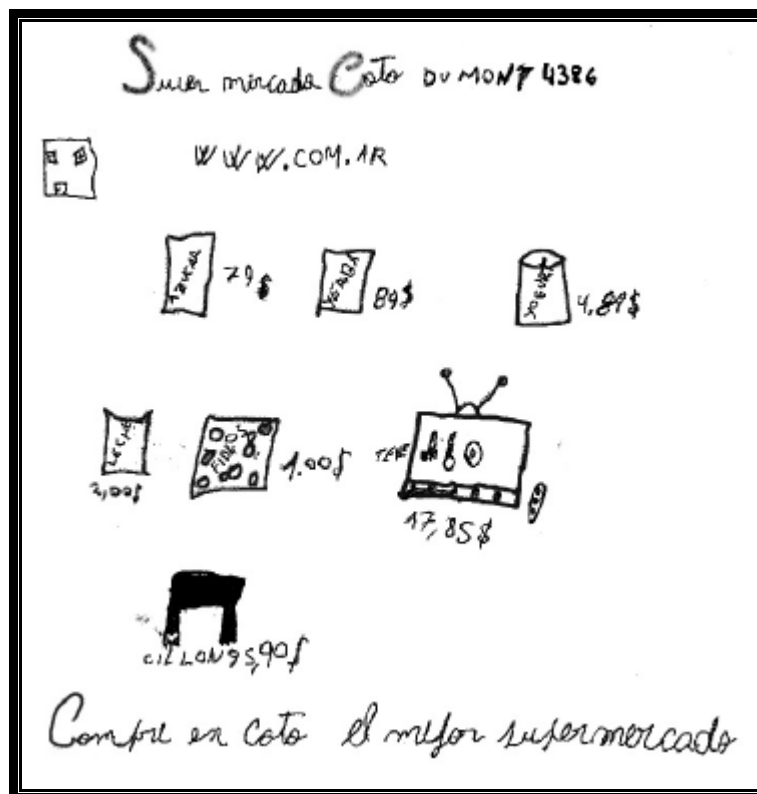 Super mercado Coto DUMONT 4386
WWW.COM.AR
AZUCAR 79$
YERBA 89$
YOGUR 4,89$
LECHE
2,00$
FIDEOS 1.00$
TELE
17,85$
CILLON 95,90$
Compre en coto el mejor supermercado